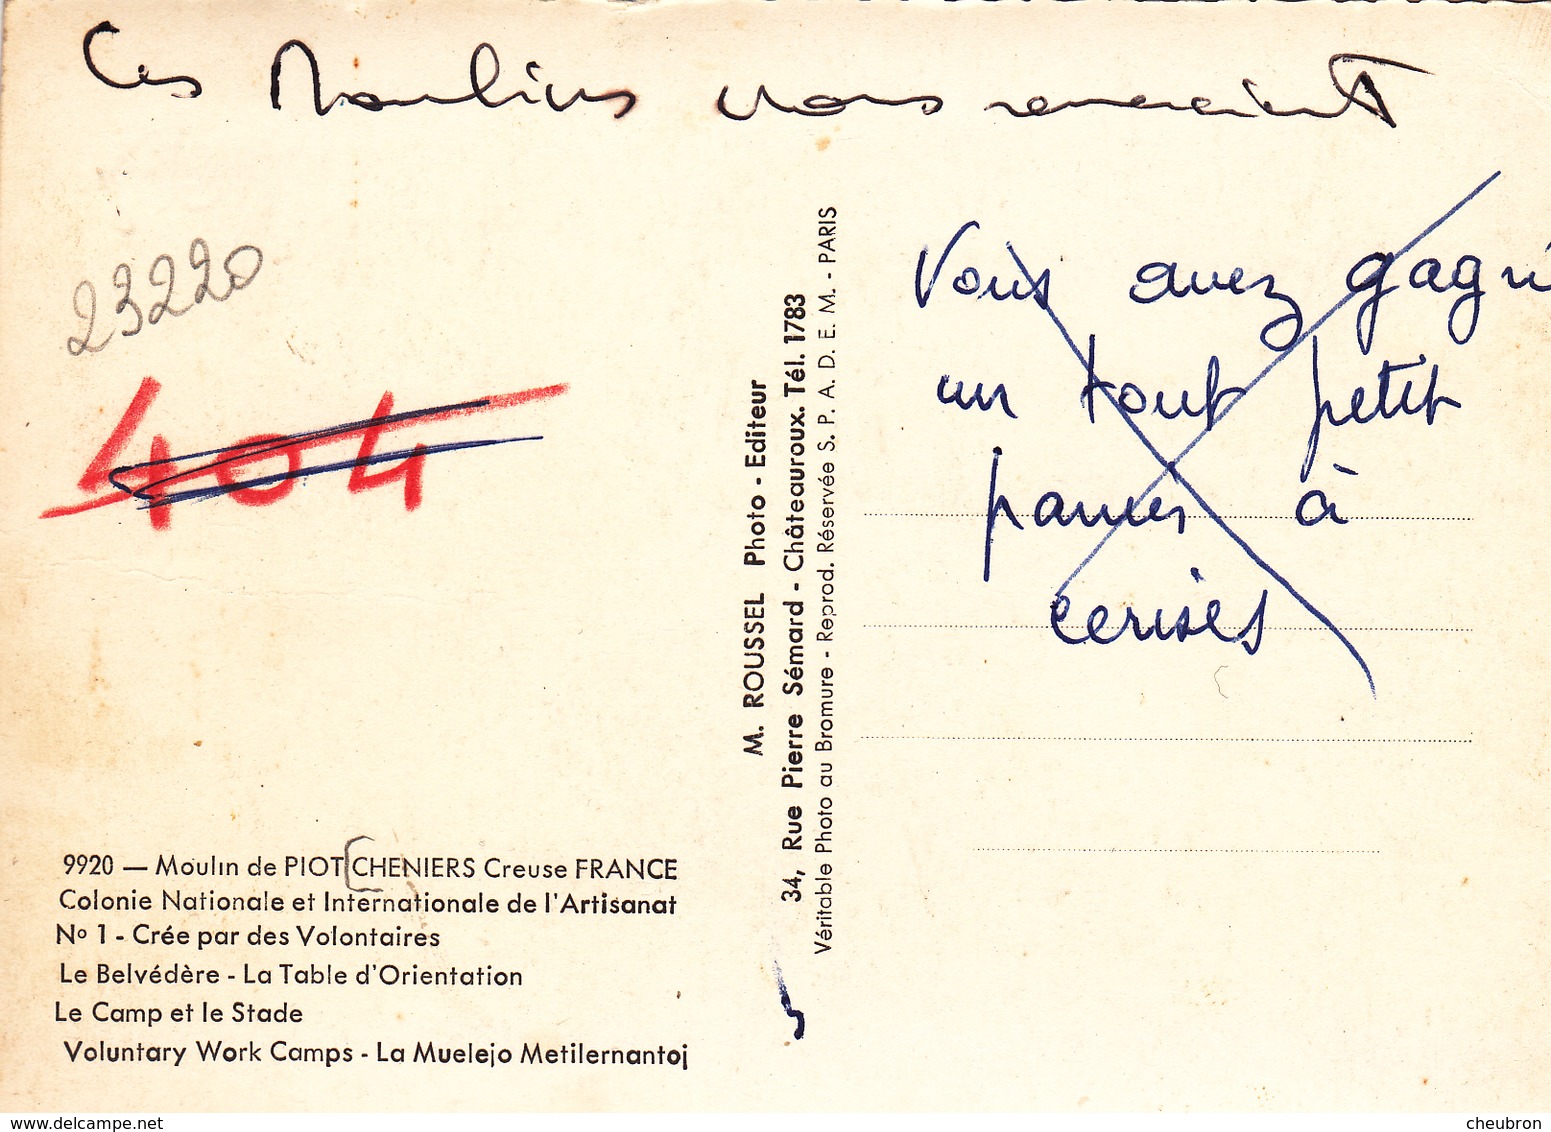 Ces Moulins vous remercient
23220
404
Vous avez gagné
un tout petit
panier à
cerises
M. ROUSSEL Photo - Editeur
34, Rue Pierre Sémard - Châteauroux. Tél. 1783
Véritable Photo au Bromure - Reprod. Réservée S. P. A. D. E. M. - PARIS
9920 — Moulin de PIOT CHENIERS Creuse FRANCE
Colonie Nationale et Internationale de l'Artisanat
Nº 1 - Crée par des Volontaires
Le Belvédère - La Table d'Orientation
Le Camp et le Stade
Voluntary Work Camps - La Muelejo Metilernantoj
www.delcampe.net
cheubron